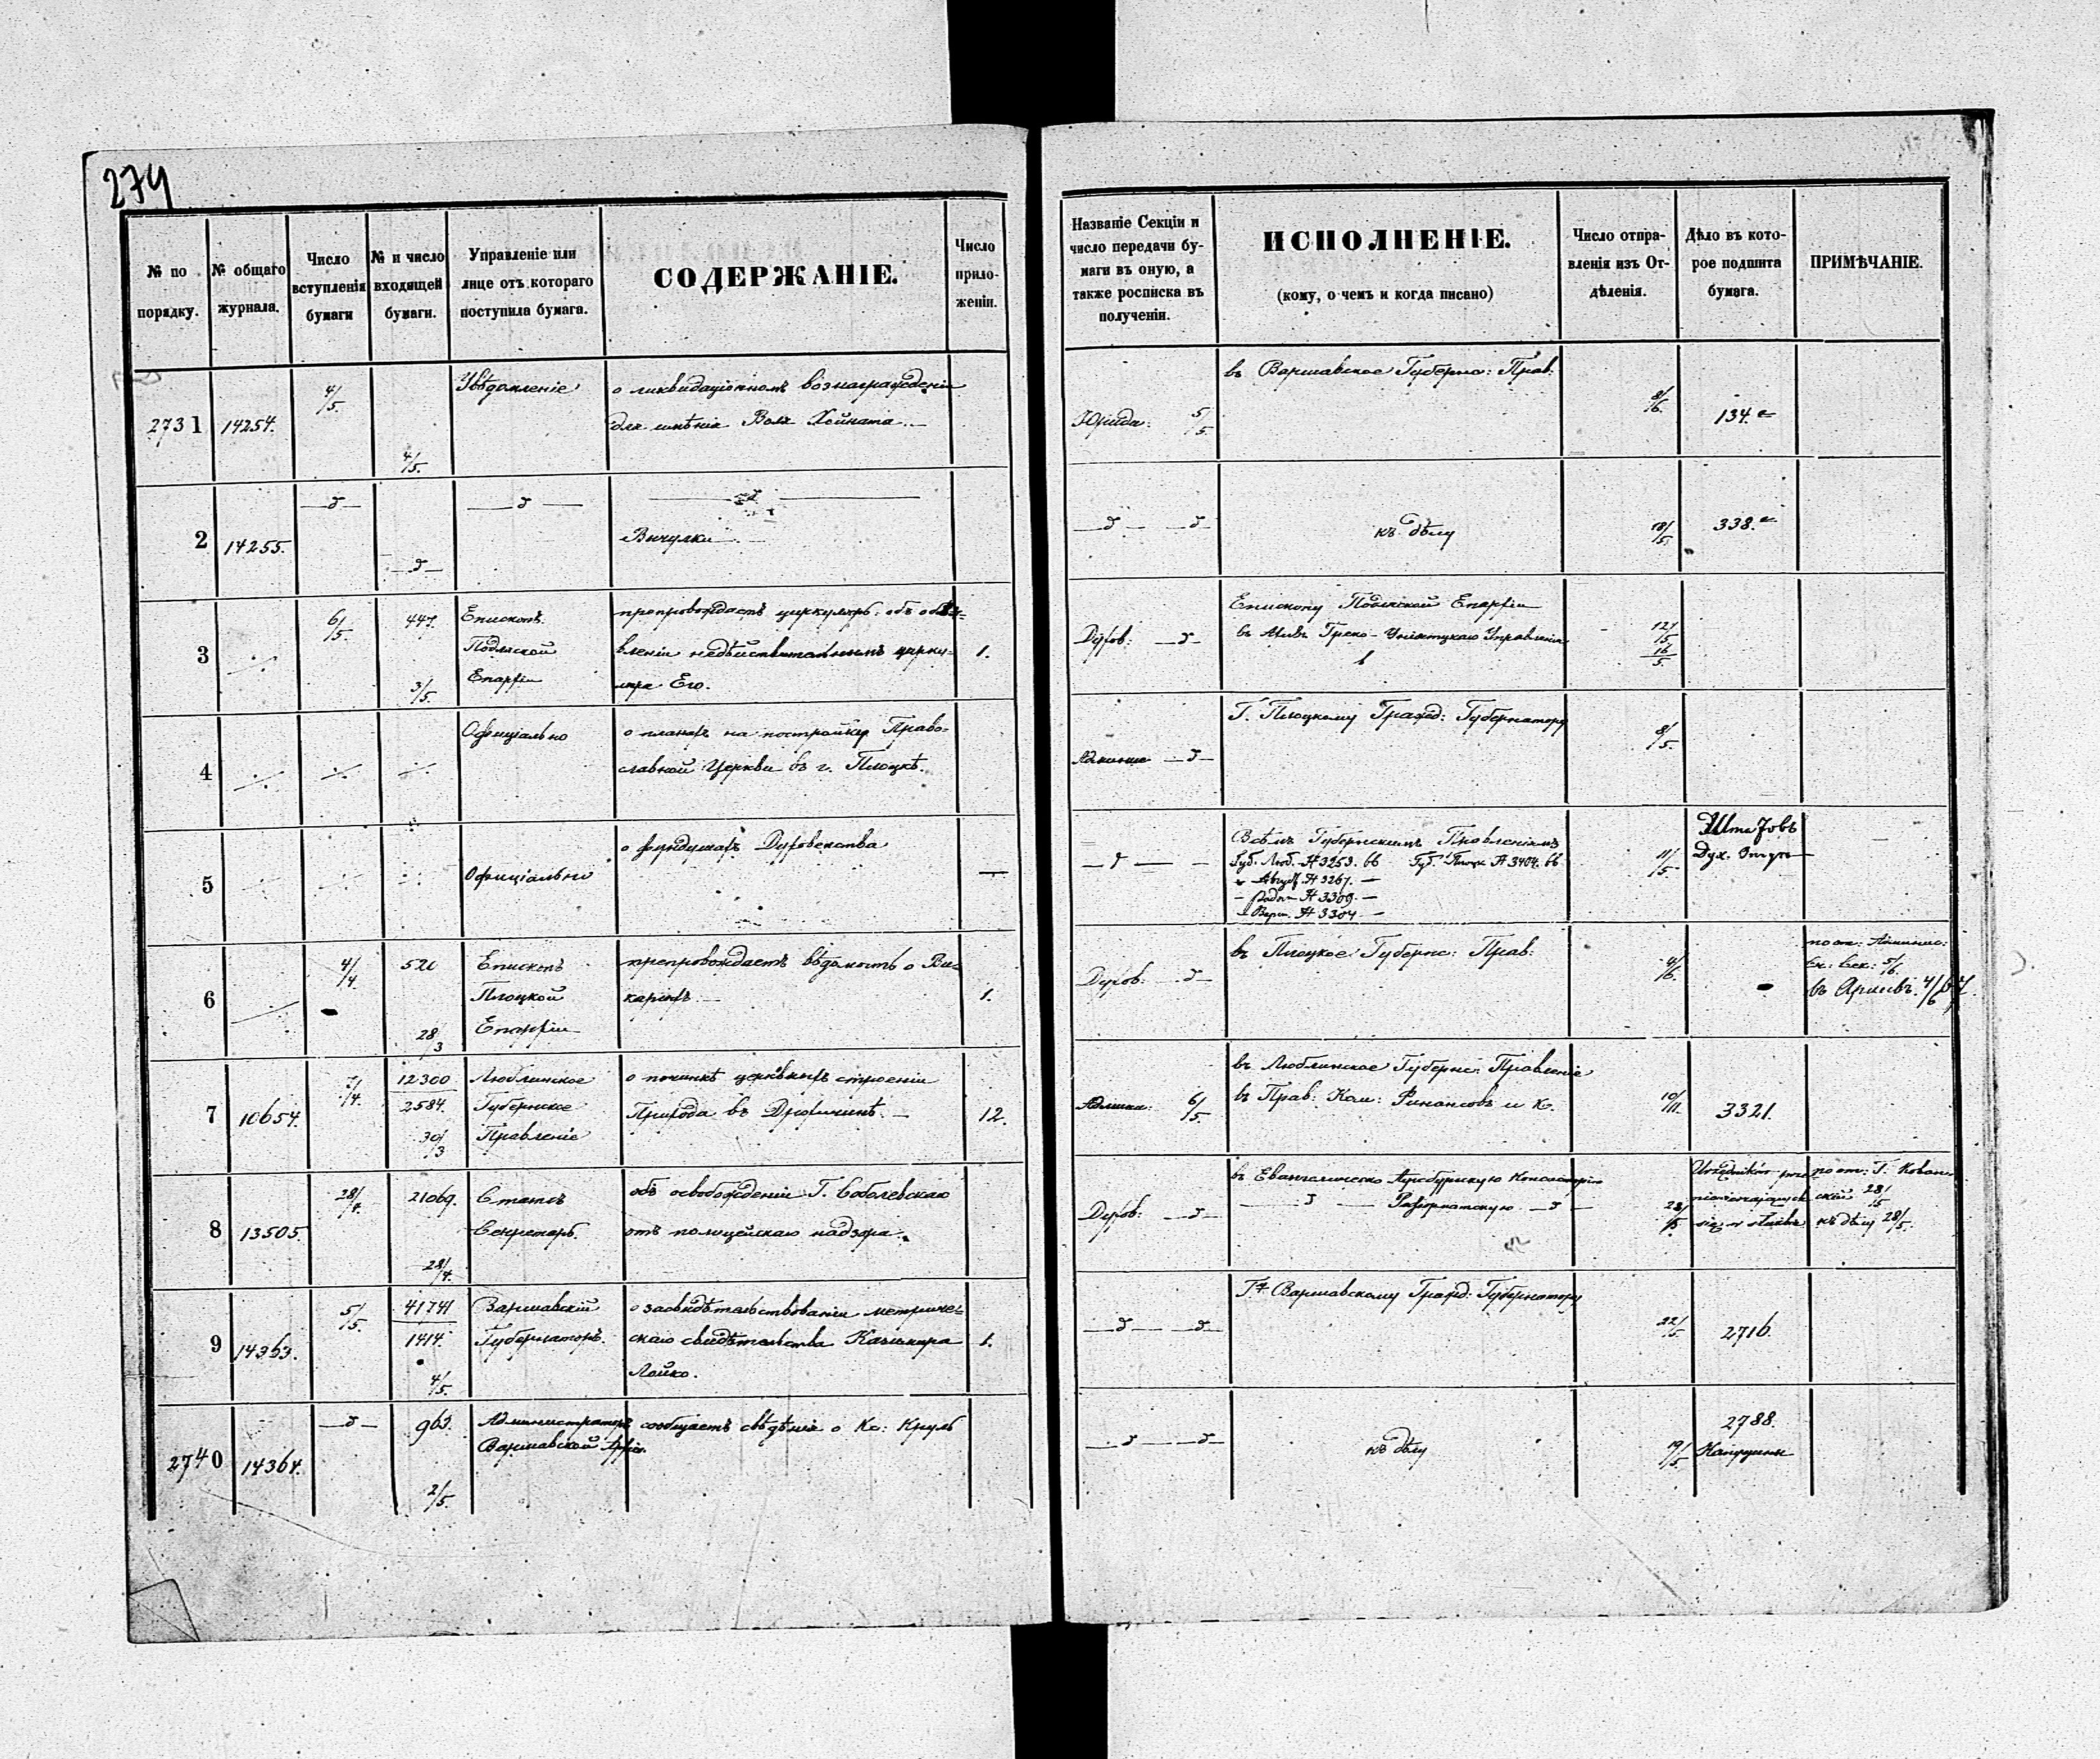 274
№ по порядку.
№ общаго журнала.
Число вступленія бумаги
№ и число входящей бумаги.
Управленіе или лице отъ котораго поступила бумага.
СОДЕРЖАНІЕ.
Число приложеніи.
Названіе Секціи и число передачи бумаги въ оную, а также росписка въ полученіи.
ИСПОЛНЕНІЕ.
(кому, о чемъ и когда писано)
Число отправленія изъ Отдѣленія.
Дѣло въ которое подшита бумага.
ПРИМѢЧАНІЕ.
2731 14254. 4/5. 4/5. Увѣдомленіе
о ликвидаціонномъ вознагражденіи
для имѣнія Воля Хойната.
Юрида: 5/5. въ Варшавское Губернс: Прав: 8/6. 134.
2 14255. —д— —д— —д— —д—
Вичулки
—д— —д— къ дѣлу 18/5. 338.
3 6/5. 447. 3/5. Епископъ
Подляской
Епархіи
препровождаетъ циркуляръ объ объя-
вленіи недѣйствительнымъ цирку-
ляра Его.
1.
Духов: —д— Епископу Подляской Епархіи
Греко-Уніятскаго Управленія
12/5 16/5.
4 Офиціально
о планахъ на постройку Право-
славной Церкви въ г. Плоцкѣ.
—д— Г. Плоцкому Гражд: Губернатору 8/5.
5 Офиціально
о фундушахъ Духовенства
—
—д— Всѣмъ Губернскимъ Правленіямъ
Губ. Люб. № 3253. Губ. Плоцк № 3404.
— Август. № 3267. —
— Радом № 3309. —
— Варш. № 3304 —
11/5 Штатовъ
Дух.
6 4/4. 520 28/3 Епископъ
Плоцкой
Епархіи
препровождаетъ вѣдомость о Ви-
каріяхъ
1.
Духов: —д— въ Плоцкое Губернс: Прав: 4/6.
5/6.
въ Архивъ 4/6 67
7 10654. 7/4. 12300
2584. 30/3 Люблинское
Губернское
Правленіе
о починкѣ церковныхъ строеніи
Прихода въ Дрогичинѣ. —
12.
6/5. въ Люблинское Губернс: Правленіе
въ Прав: Ком: Финансовъ и К.
10/11. 3321.
8 13505. 28/4. 21069. 28/4. Статсъ
Секретарь.
объ освобожденіи Г. Соболевскаго
отъ полицейскаго надзора.
Духов: —д— въ Евангелическо Аугсбургскую Консисторію
—д— Реформатскую —д—
28/5.
28/5
къ дѣлу 28/5.
9 14363. 5/5. 41741
1414. 4/5. Варшавскій
Губернаторъ.
о засвидѣтельствованіи метриче-
скаго свидѣтельства Казимира
Лойко.
1.
—д— —д— Варшавскому Гражд: Губернатору 22/5. 2716.
2740 14364. —д— 963. 2/5. Администраторъ
Варшавской
сообщаетъ свѣдѣнія о Кс: Круль
—д— —д— къ дѣлу 19/5. 2788.